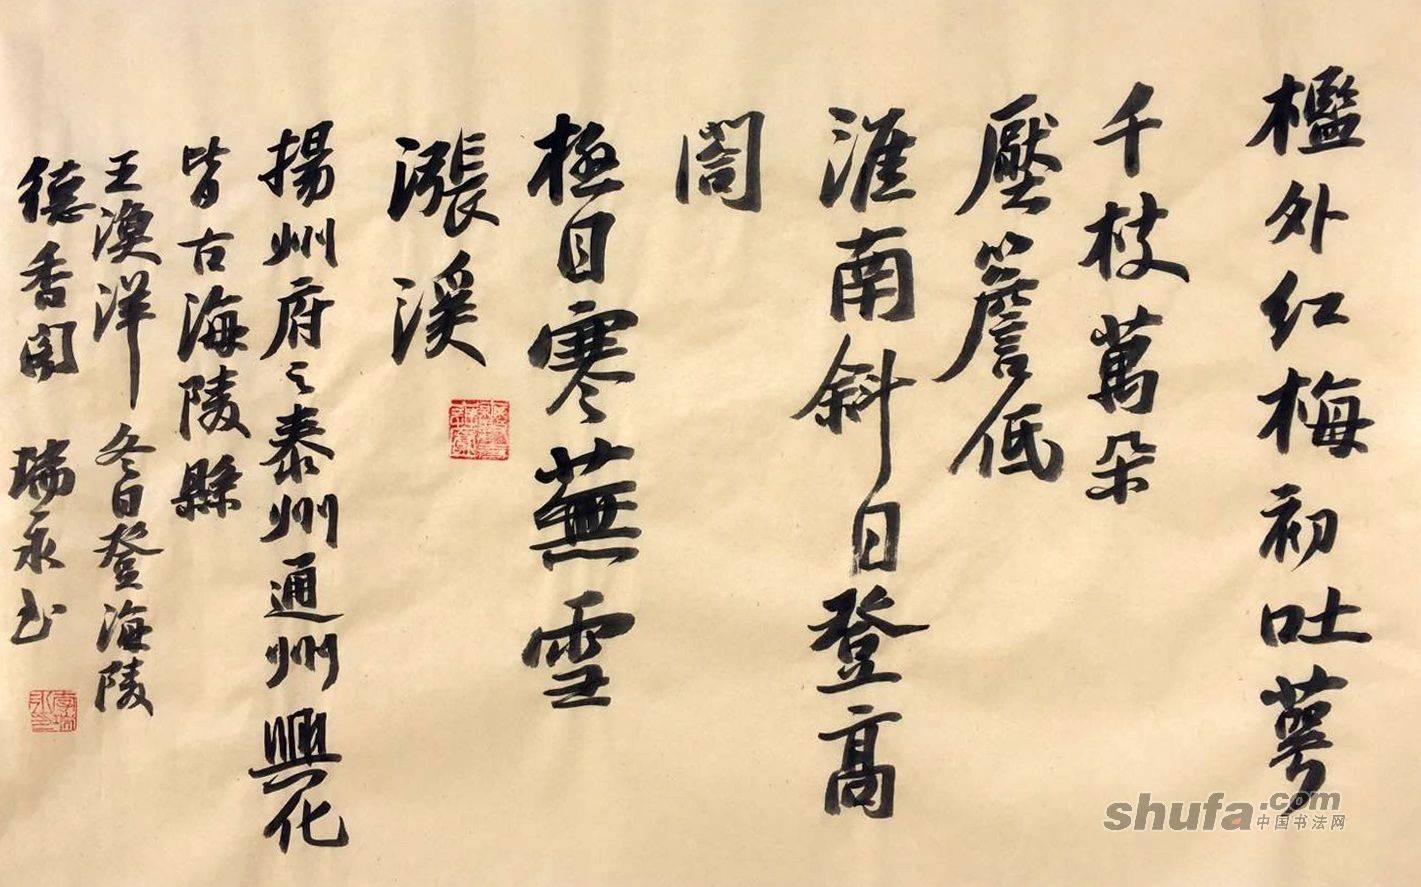 檻外红梅初吐萼
千枝萬朵
壓簷低
淮南斜日登高
閣
極目寒蕪雪
漲溪
揚州府之泰州通州興化
皆古海陵縣
王漁洋 冬日登海陵
德香閣 瑞永书
shufa.com
中国书法网